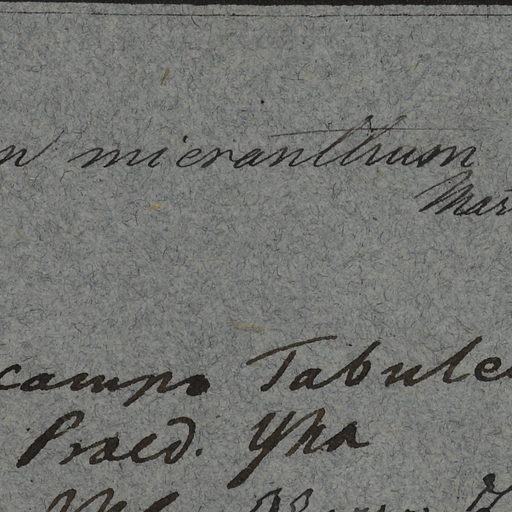 n micranthum
Mart
campo Tabule
Praed. Yha